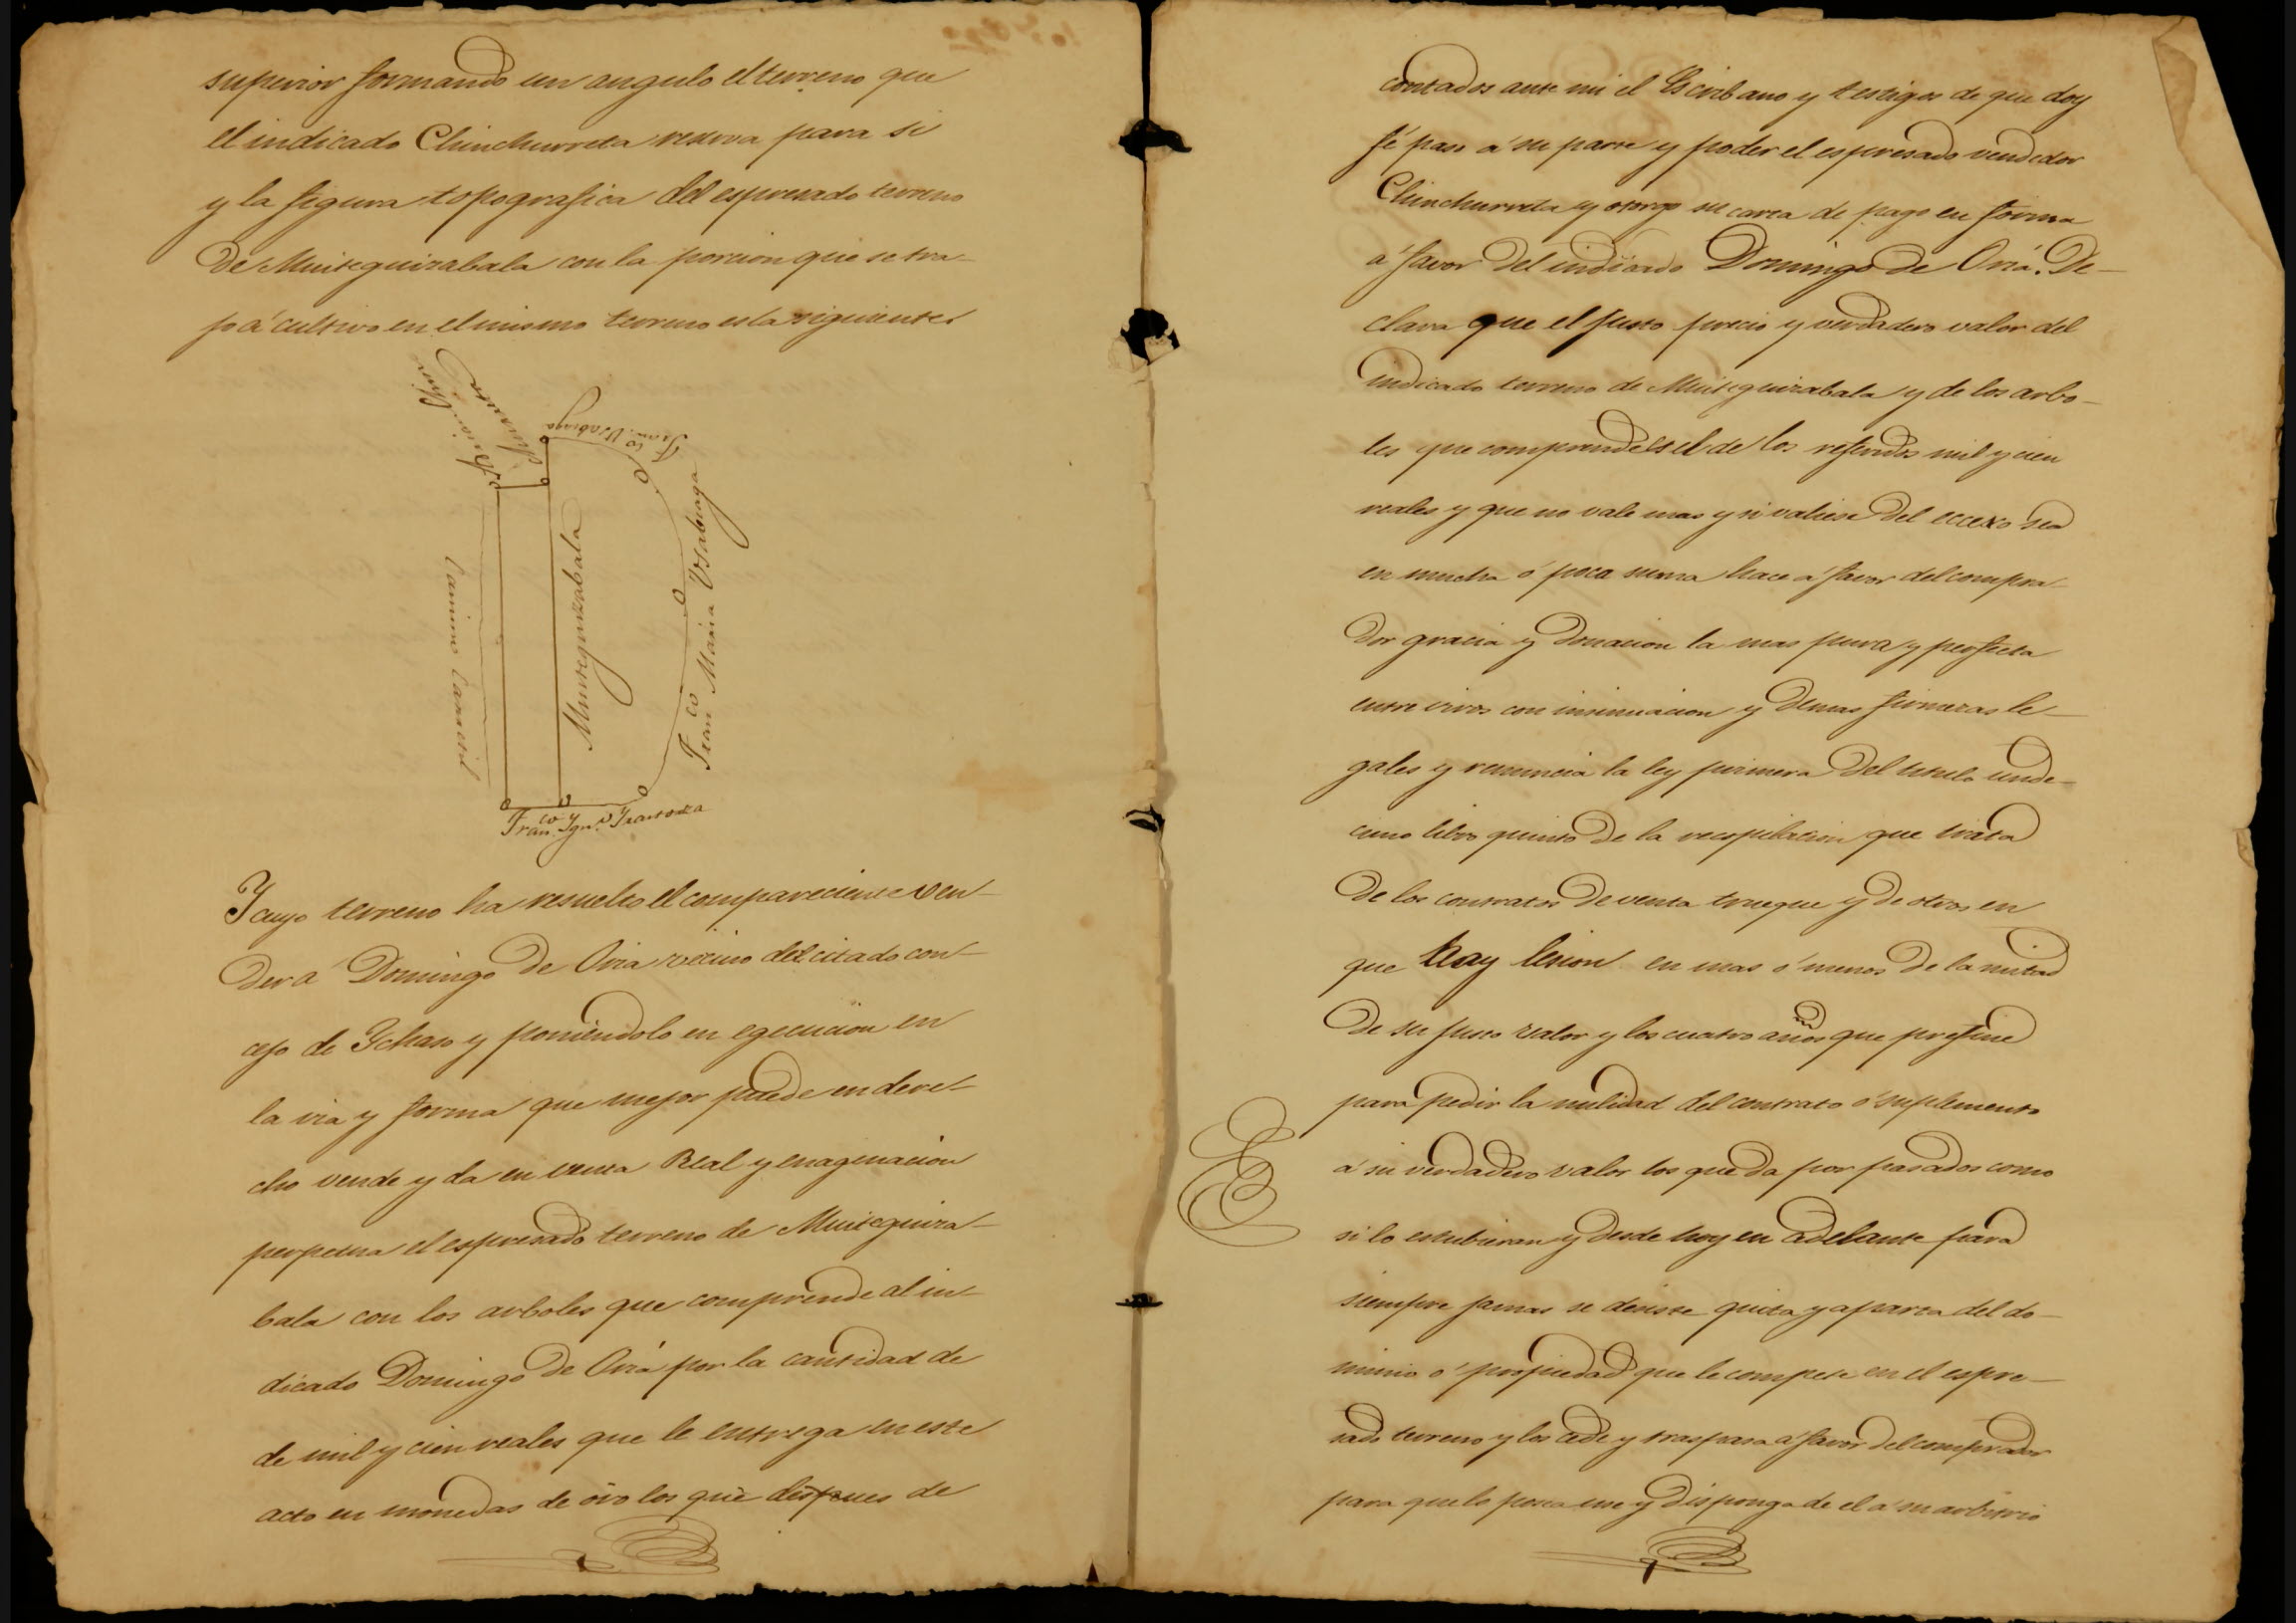 superior formando un angulo el terreno que
el indicado Chinchurreta reserva para si
y la figura topografica del espresado terreno
de Muiteguizabala con la porcion que se tra-
jo a cultivo en el mismo terreno es la siguiente
Chinchurreta
Fran.co Usabiaga
Camino Carretil
Muiteguizabala
Fran.co Maria Usabiaga
Fran.co Ygn.o
Y cuyo terreno ha resuelto el compareciente ven-
der a Domingo de Oria vecino del citado con-
cejo de Ychaso y poniendolo en egecucion en
la via y forma que mejor puede en dere-
cho vende y da en venta Real y enagenacion
perpetua el espresado terreno de Muiteguiza-
bala con los arboles que comprende al in-
dicado Domingo de Oria por la cantidad de
de mil y cien reales que le entrega en este
acto en monedas de oro los que despues de
contados ante mi el Escribano y testigos de que doy
fé paso á su parte y poder el espresado vendedor
Chinchurreta y otorgo su carta de pago en forma
á favor del indicado Domingo de Oriá. De-
clara que el justo precio y verdadero valor del
indicado terreno de Muiteguizabala y de los arbo-
les que comprende es el de los referidos mil y cien
reales y que no vale mas y si valiese del eccexo sea
en mucha ó poca suma hace á favor del compra-
dor gracia y donacion la mas pura y perfecta
entre vivos con insinuacion y demas firmezas le-
gales y renuncia la ley primera del titulo unde-
cimo libro quinto de la recopilacion que trata
de los contratos de venta trueque y de otros en
que hay lesion en mas ó menos de la mitad
de su justo valor y los cuatro años que prefine
para pedir la nulidad del contrato ó suplemento
á su verdadero valor los que da por pasados como
si lo estubieran y desde hoy en adelante para
siempre jamas se desiste quita y aparta del do-
minio ó propiedad que le compete en el espre-
sado terreno y los cede y traspasa á favor del comprador
para que lo posea use y disponga de el á su arbitrio